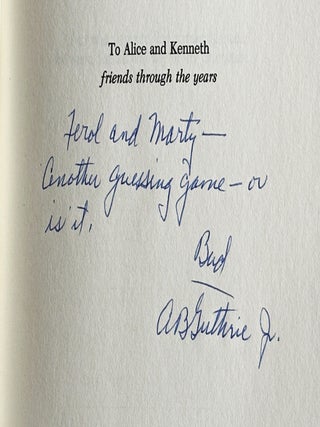 To Alice and Kenneth
friends through the years
Ferol and Marty—
Another guessing game—or
is it.
Bud
A B Guthrie Jr.